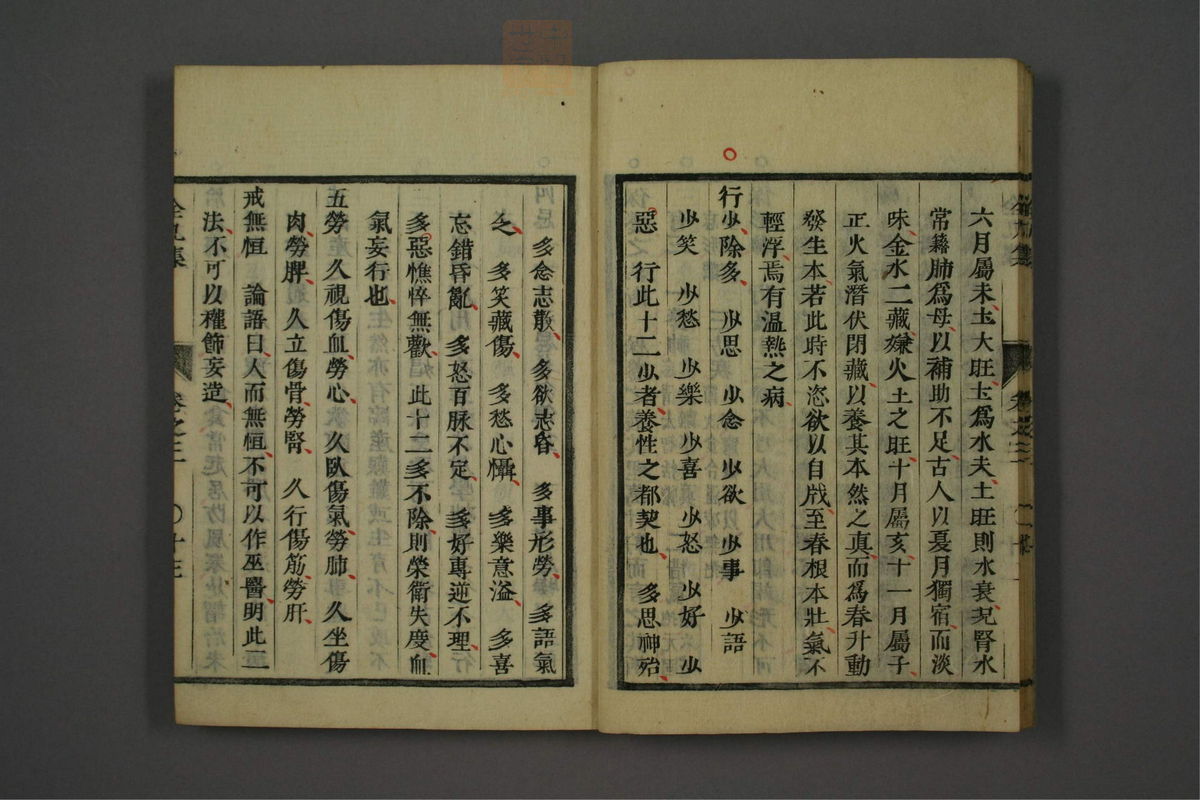 六月屬未土大旺土爲水夫土旺則水衰况腎水
常籍肺爲母以補助不足古人以夏月獨宿而淡
味金水二藏嫌火土之旺十月屬亥十一月屬子
正火氣潛伏閉藏以養其本然之真而爲春升動
發生本若此時不恣欲以自戕至春根本壯氣不
輕浮焉有温熱之病
行少除多 少思 少念 少欲 少事 少語
少笑 少愁 少樂 少喜 少怒 少好 少
惡 行此十二少者養性之都契也 多思神殆
多念志散 多欲志昏 多事形勞 多語氣
乏 多笑藏傷 多愁心懾 多樂意溢 多喜
忘錯昏亂 多怒百脉不定 多好專逆不理
多惡憔悴無歡 此十二多不除則榮衛失度血
氣妄行也
五勞 久視傷血勞心 久臥傷氣勞肺 久坐傷
肉勞脾 久立傷骨勞腎 久行傷筋勞肝
戒無恒 論語曰人而無恒不可以作巫醫明此二
法不可以權節妄造
卷之三 〇十三